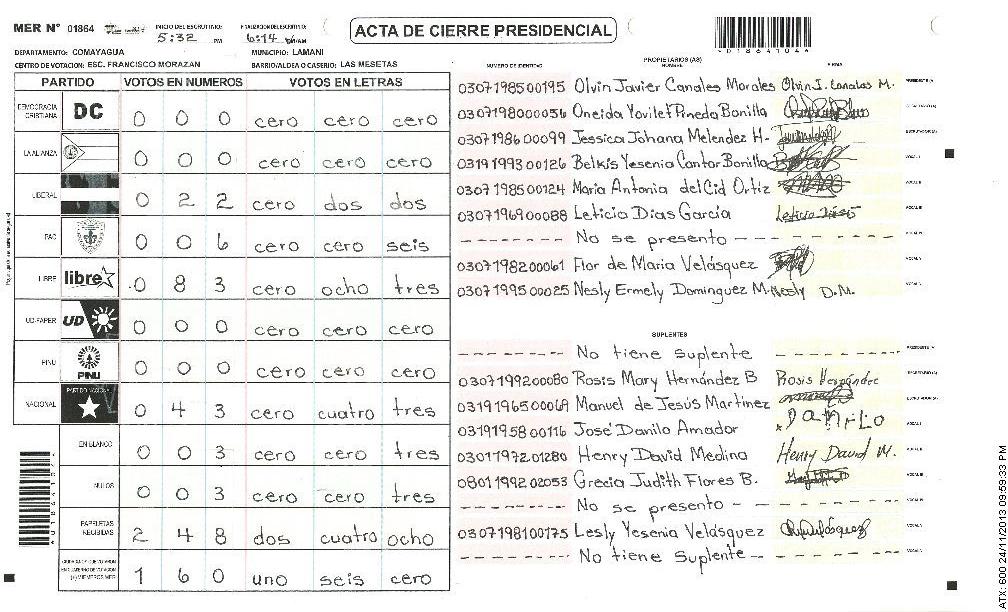 MER Nº 01864
INICIO DEL ESCRUTINIO:
5:32 PM
FINALIZACION DEL ESCRUTINIO:
6:14 PM/AM
ACTA DE CIERRE PRESIDENCIAL
DEPARTAMENTO: COMAYAGUA
MUNICIPIO: LAMANI
CENTRO DE VOTACION: ESC. FRANCISCO MORAZAN
BARRIO/ALDEA O CASERIO: LAS MESETAS
PARTIDO VOTOS EN NUMEROS VOTOS EN LETRAS
DEMOCRACIA CRISTIANA DC 0 0 0 cero cero cero
LA ALIANZA 0 0 0 cero cero cero
LIBERAL 0 2 2 cero dos dos
PAC 0 0 6 cero cero seis
LIBRE libre 0 8 3 cero ocho tres
UD-FAPER UD 0 0 0 cero cero cero
PINU PINU 0 0 0 cero cero cero
NACIONAL PARTIDO NACIONAL 0 4 3 cero cuatro tres
EN BLANCO 0 0 3 cero cero tres
NULOS 0 0 3 cero cero tres
PAPELETAS RECIBIDAS 2 4 8 dos cuatro ocho
(+) MIEMBROS MER 1 6 0 uno seis cero
PROPIETARIOS (AS)
NUMERO DE IDENTIDAD NOMBRE FIRMA
0307198500195 Olvin Javier Canales Morales Olvin J. Canales M. PRESIDENTE (A)
0307198000056 Oneida Yovilet Pineda Bonilla SECRETARIO (A)
0307198600099 Jessica Johana Melendez H. ESCRUTADOR (A)
0319199300126 Belkis Yesenia Cantor Bonilla VOCAL I
0307198500124 Maria Antonia del Cid Ortiz VOCAL II
0307196900088 Leticia Dias García VOCAL III
- - - - - - - No se presento - - - - - - - VOCAL IV
0307198200061 Flor de Maria Velásquez VOCAL V
0307199500025 Nesly Ermely Dominguez M. Nesly D.M.
SUPLENTES
- - - - - - - No tiene suplente - - - - - - - PRESIDENTE (A)
0307199200080 Rosis Mary Hernández B Rosis Hernández SECRETARIO (A)
0319196500069 Manuel de Jesús Martinez ESCRUTADOR (A)
0319195800116 José Danilo Amador DaNiLo VOCAL I
0301197201280 Henry David Medina Henry David M. VOCAL II
0801199202053 Grecia Judith Flores B. VOCAL III
- - - - - - - No se presento - - - - - - - VOCAL IV
0307198100175 Lesly Yesenia Velásquez VOCAL V
- - - - - - - No tiene Suplente - - - - - - -
ATX: 600 24/11/2013 09:59:33 PM